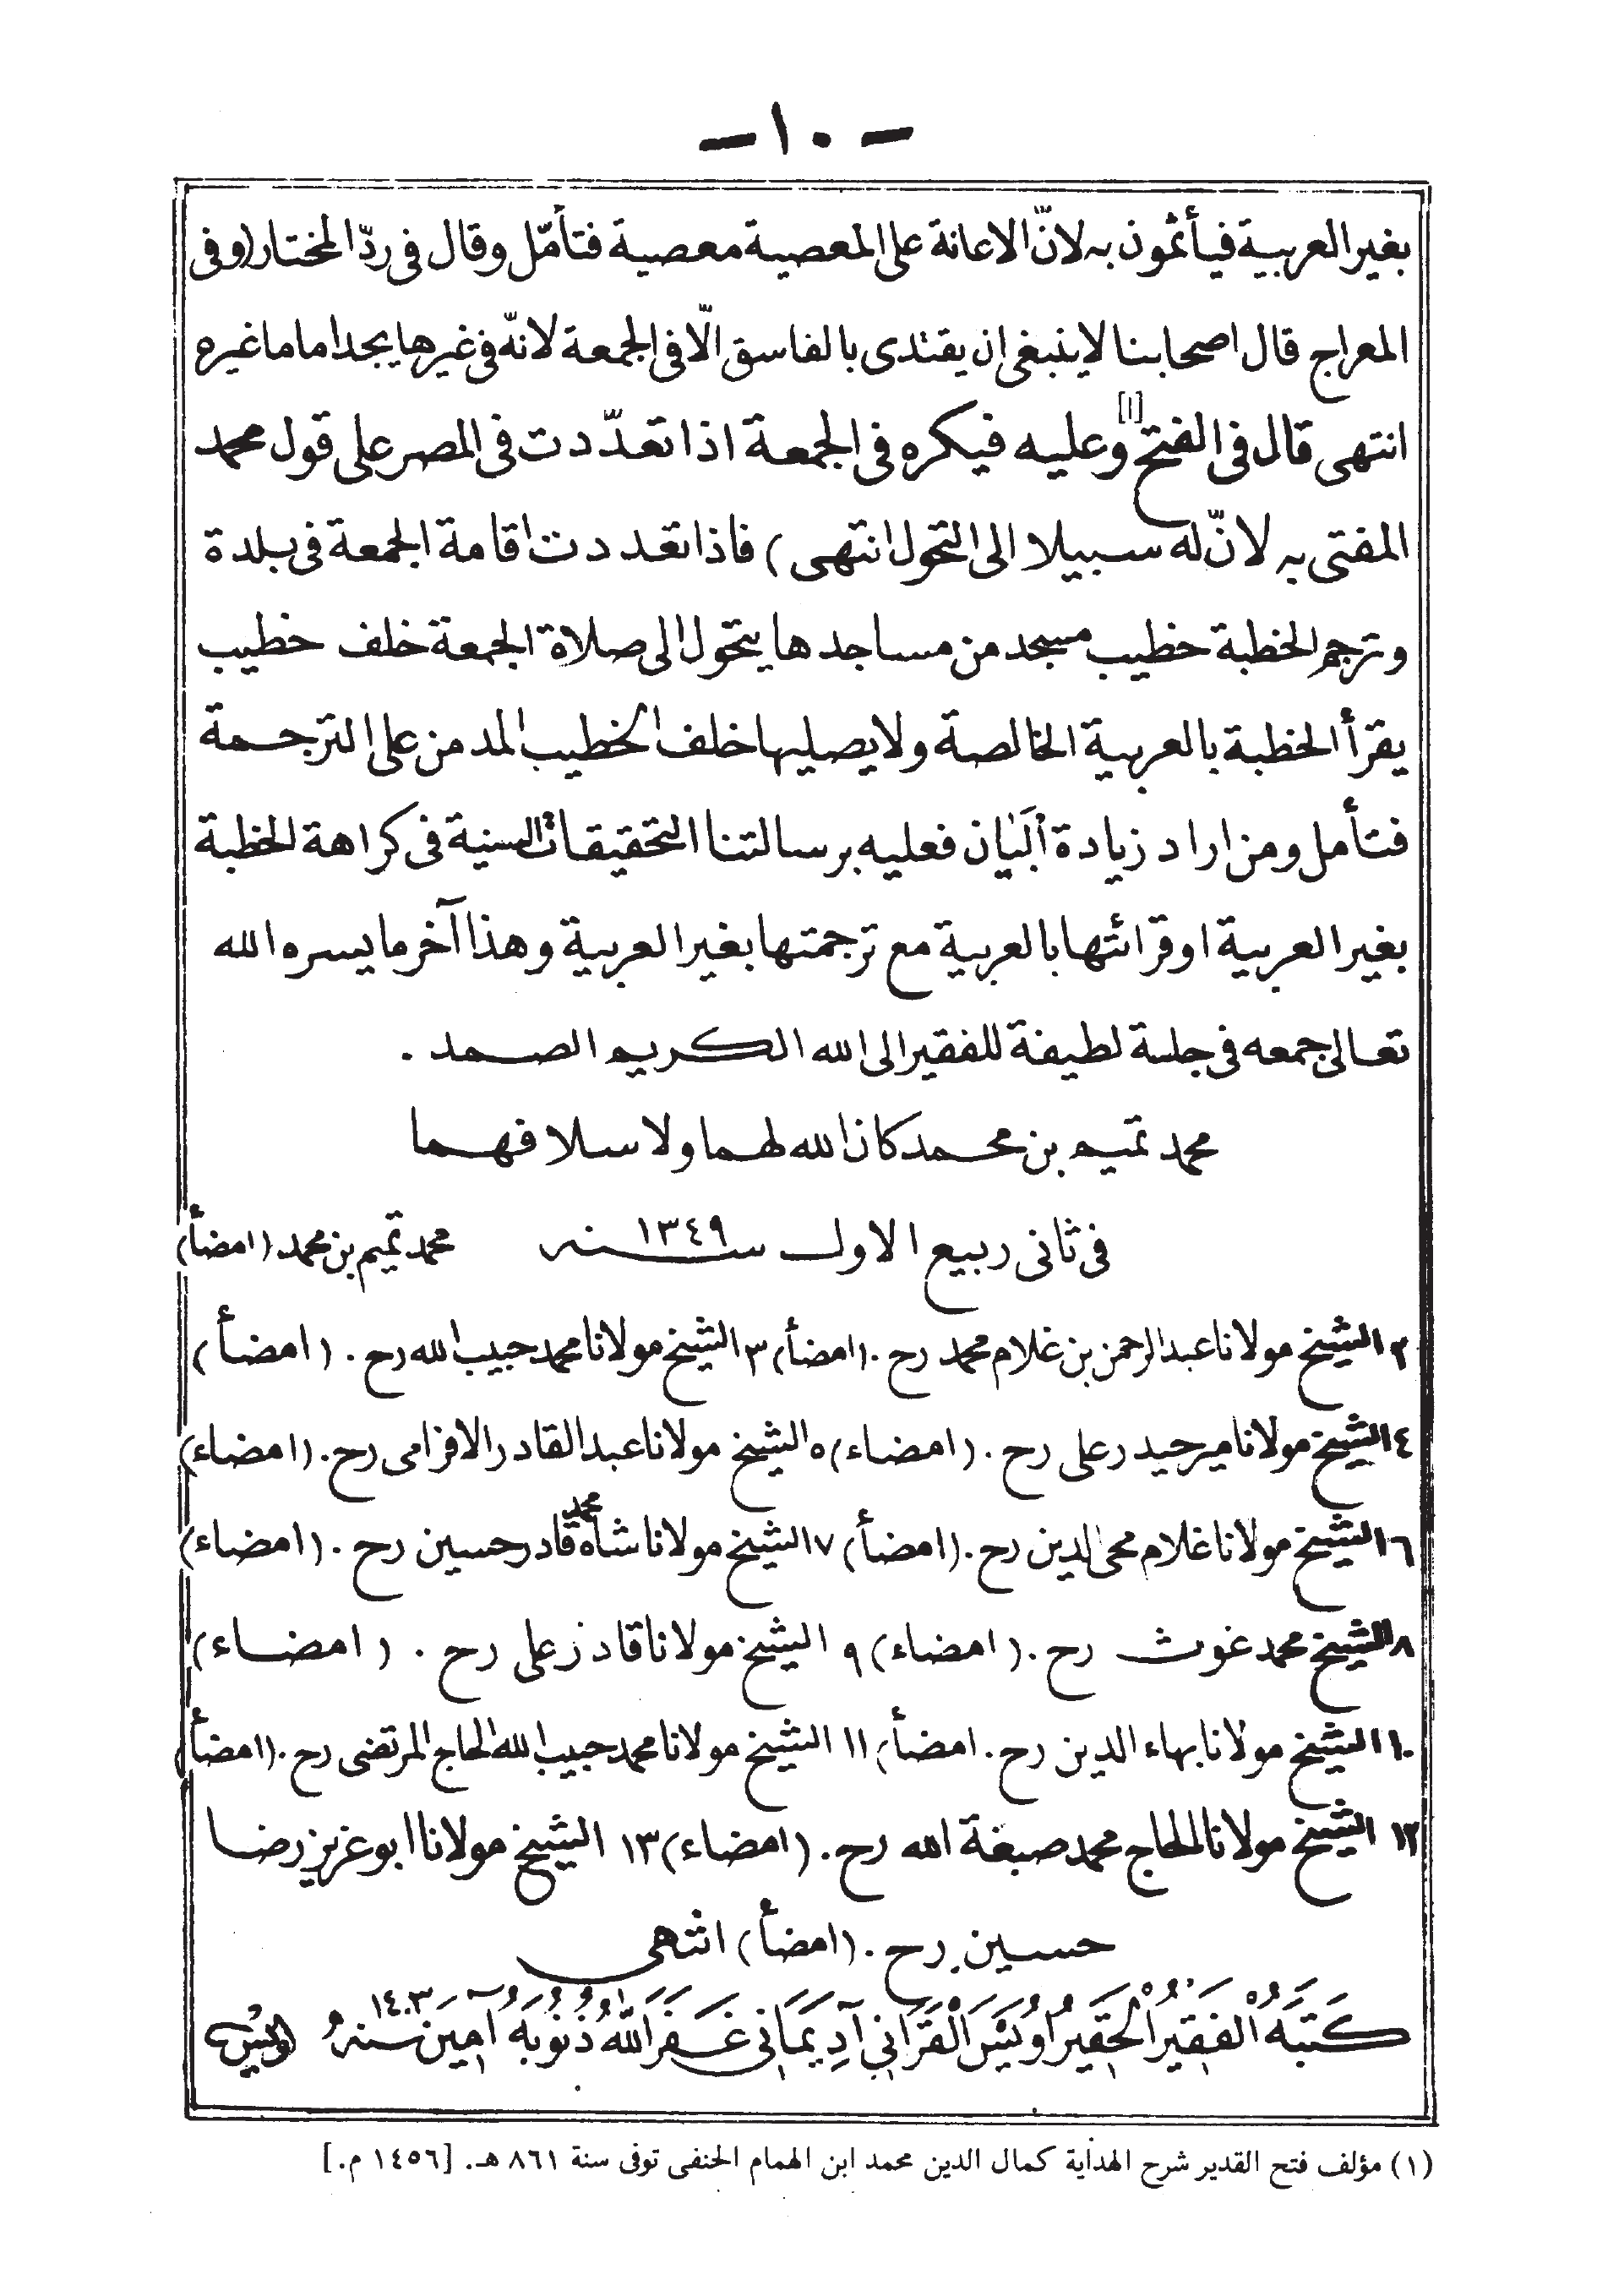 - ١٠ -
بغير العربية فيأثمون به لانّ الاعانة على المعصية معصية فتأمّل وقال فى ردّ المختار (وفى
المعراج قال اصحابنا لا ينبغى ان يقتدى بالفاسق الّا فى الجمعة لانّه فى غيرها يجد اماما غيره
انتهى قال فى الفتح [١] وعليه فيكره فى الجمعة اذا تعدّدت فى المصر على قول محمد
المفتى به لانّ له سبيلا الى التحول انتهى) فاذا تعددت اقامة الجمعة فى بلدة
وترجم الخطبة خطيب مسجد من مساجدها يتحول الى صلاة الجمعة خلف خطيب
يقرأ الخطبة بالعربية الخالصة ولا يصليها خلف الخطيب المدمن على الترجمة
فتأمل ومن اراد زيادة البَيان فعليه برسالتنا التحقيقات السنية فى كراهة الخطبة
بغير العربية او قرائتها بالعربية مع ترجمتها بغير العربية وهذا آخر ما يسره الله
تعالى جمعه فى جلسة لطيفة للفقير الى الله الكريم الصمد .
محمد تميم بن محمد كان الله لهما ولاسلافهما
فى ثانى ربيع الاول سنه ١٣٤٩ محمد تميم بن محمد (امضأ)
٢ الشيخ مولانا عبد الرحمن بن غلام محمد رح . (امضأ) ٣ الشيخ مولانا محمد حبيب الله رح . (امضأ)
٤ الشيخ مولانا مير حيدر على رح . (امضاء) ٥ الشيخ مولانا عبد القادر الافزامى رح . (امضاء)
٦ الشيخ مولانا غلام محى الدين رح . (امضأ) ٧ الشيخ مولانا شاه محمد قادر حسين رح . (امضاء)
٨ الشيخ محمد غوث رح . (امضاء) ٩ الشيخ مولانا قادر على رح . (امضاء)
١٠ الشيخ مولانا بهاء الدين رح . امضأ) ١١ الشيخ مولانا محمد حبيب الله الحاج المرتضى رح . (امضأ)
١٢ الشيخ مولانا الحاج محمد صبغة الله رح . (امضاء) ١٣ الشيخ مولانا ابو عزيز رضا
حسين رح . (امضأ) انتهى
كَتَبَهُ الْفَقِيرُ الْحَقِيرُ اُوَيْسَ الْقَرَانِي آدِيَمَانِي غَفَرَ اللّٰهُ ذُنُوبَهُ آمِينَ سنه ١٤٠٣ اويس
(١) مؤلف فتح القدير شرح الهداية كمال الدين محمد ابن الهمام الحنفى توفى سنة ٨٦١ هـ. [١٤٥٦ م.]